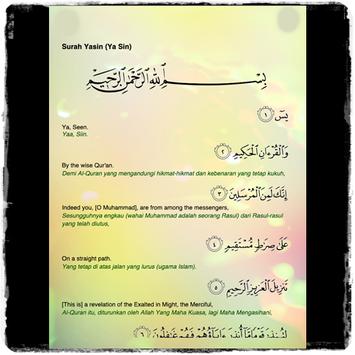 Surah Yasin (Ya Sin)
بِسْمِ ٱللَّهِ ٱلرَّحْمَٰنِ ٱلرَّحِيمِ
يسٓ ١
Ya, Seen.
Yaa, Siin.
وَٱلْقُرْءَانِ ٱلْحَكِيمِ ٢
By the wise Qur'an.
Demi Al-Quran yang mengandungi hikmat-hikmat dan kebenaran yang tetap kukuh,
إِنَّكَ لَمِنَ ٱلْمُرْسَلِينَ ٣
Indeed you, [O Muhammad], are from among the messengers,
Sesungguhnya engkau (wahai Muhammad adalah seorang Rasul) dari Rasul-rasul
yang telah diutus,
عَلَىٰ صِرَٰطٍ مُّسْتَقِيمٍ ٤
On a straight path.
Yang tetap di atas jalan yang lurus (ugama Islam).
تَنزِيلَ ٱلْعَزِيزِ ٱلرَّحِيمِ ٥
[This is] a revelation of the Exalted in Might, the Merciful,
Al-Quran itu, diturunkan oleh Allah Yang Maha Kuasa, lagi Maha Mengasihani,
لِتُنذِرَ قَوْمًا مَّآ أُنذِرَ ءَابَآؤُهُمْ فَهُمْ غَٰفِلُونَ ٦